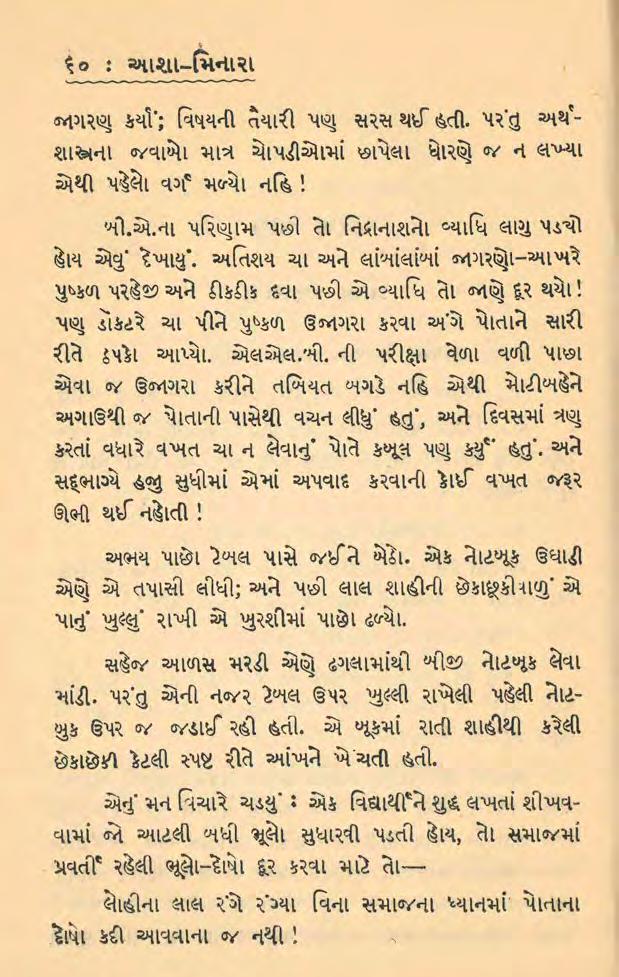 ૬૦ : આશા-મિનારા
જાગરણ કર્યાં; વિષયની તૈયારી પણ સરસ થઈ હતી. પરંતુ અર્થ-
શાસ્ત્રના જવાબો માત્ર ચોપડીઓમાં છાપેલા ધોરણે જ ન લખ્યા
એથી પહેલો વર્ગ મળ્યો નહિ !
બી.એ.ના પરિણામ પછી તો નિદ્રાનાશનો વ્યાધિ લાગુ પડયો
હોય એવું દેખાયું. અતિશય ચા અને લાંબાંલાંબાં જાગરણો-આખરે
પુષ્કળ પરહેજી અને ઠીકઠીક દવા પછી એ વ્યાધિ તો જાણે દૂર થયો!
પણ ડૉકટરે ચા પીને પુષ્કળ ઉજાગરા કરવા અંગે પોતાને સારી
રીતે ઠપકો આપ્યો. એલએલ.બી. ની પરીક્ષા વેળા વળી પાછા
એવા જ ઉજાગરા કરીને તબિયત બગડે નહિ એથી મોટીબહેને
અગાઉથી જ પોતાની પાસેથી વચન લીધું હતું, અને દિવસમાં ત્રણ
કરતાં વધારે વખત ચા ન લેવાનું પોતે કબૂલ પણ કર્યું હતું. અને
સદ્ભાગ્યે હજી સુધીમાં એમાં અપવાદ કરવાની કોઈ વખત જરૂર
ઊભી થઈ નહોતી !
અભય પાછો ટેબલ પાસે જઈને બેઠો. એક નોટબૂક ઉઘાડી
એણે એ તપાસી લીધી; અને પછી લાલ શાહીની છેકાછૂકીવાળું એ
પાનું ખુલ્લું રાખી એ ખુરશીમાં પાછો ઢળ્યો.
સહેજ આળસ મરડી એણે ઢગલામાંથી બીજી નોટબૂક લેવા
માંડી. પરંતુ એની નજર ટેબલ ઉપર ખુલ્લી રાખેલી પહેલી નોટ-
બુક ઉપર જ જડાઈ રહી હતી. એ બૂકમાં રાતી શાહીથી કરેલી
છેકાછેકી કેટલી સ્પષ્ટ રીતે આંખને ખેંચતી હતી.
એનું મન વિચારે ચડયું : એક વિદ્યાર્થીને શુદ્ધ લખતાં શીખવ-
વામાં જો આટલી બધી ભૂલો સુધારવી પડતી હોય, તો સમાજમાં
પ્રવર્તી રહેલી ભૂલો-દોષો દૂર કરવા માટે તો—
લોહીના લાલ રંગે રંગ્યા વિના સમાજના ધ્યાનમાં પોતાના
દોષો કદી આવવાના જ નથી !